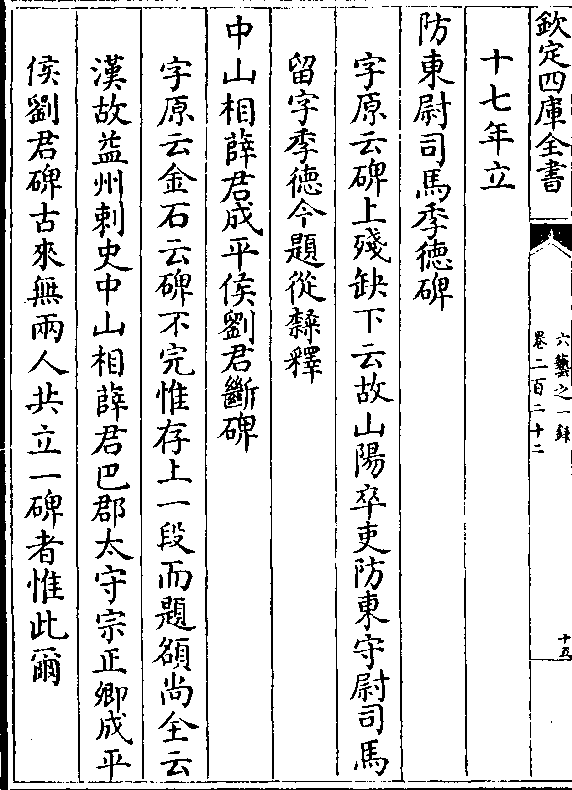 欽定四庫全書
六藝之一錄
卷二百二十二
十五
十七年立
防東尉司馬季徳碑
字原云碑上殘缺下云故山陽卒吏防東守尉司馬
留字季徳今題從隸釋
中山相薛君成平侯劉君斷碑
字原云金石云碑不完惟存上一段而題額尚全云
漢故益州刺史中山相薛君巴郡太守宗正卿成平
侯劉君碑古來無兩人共立一碑者惟此爾